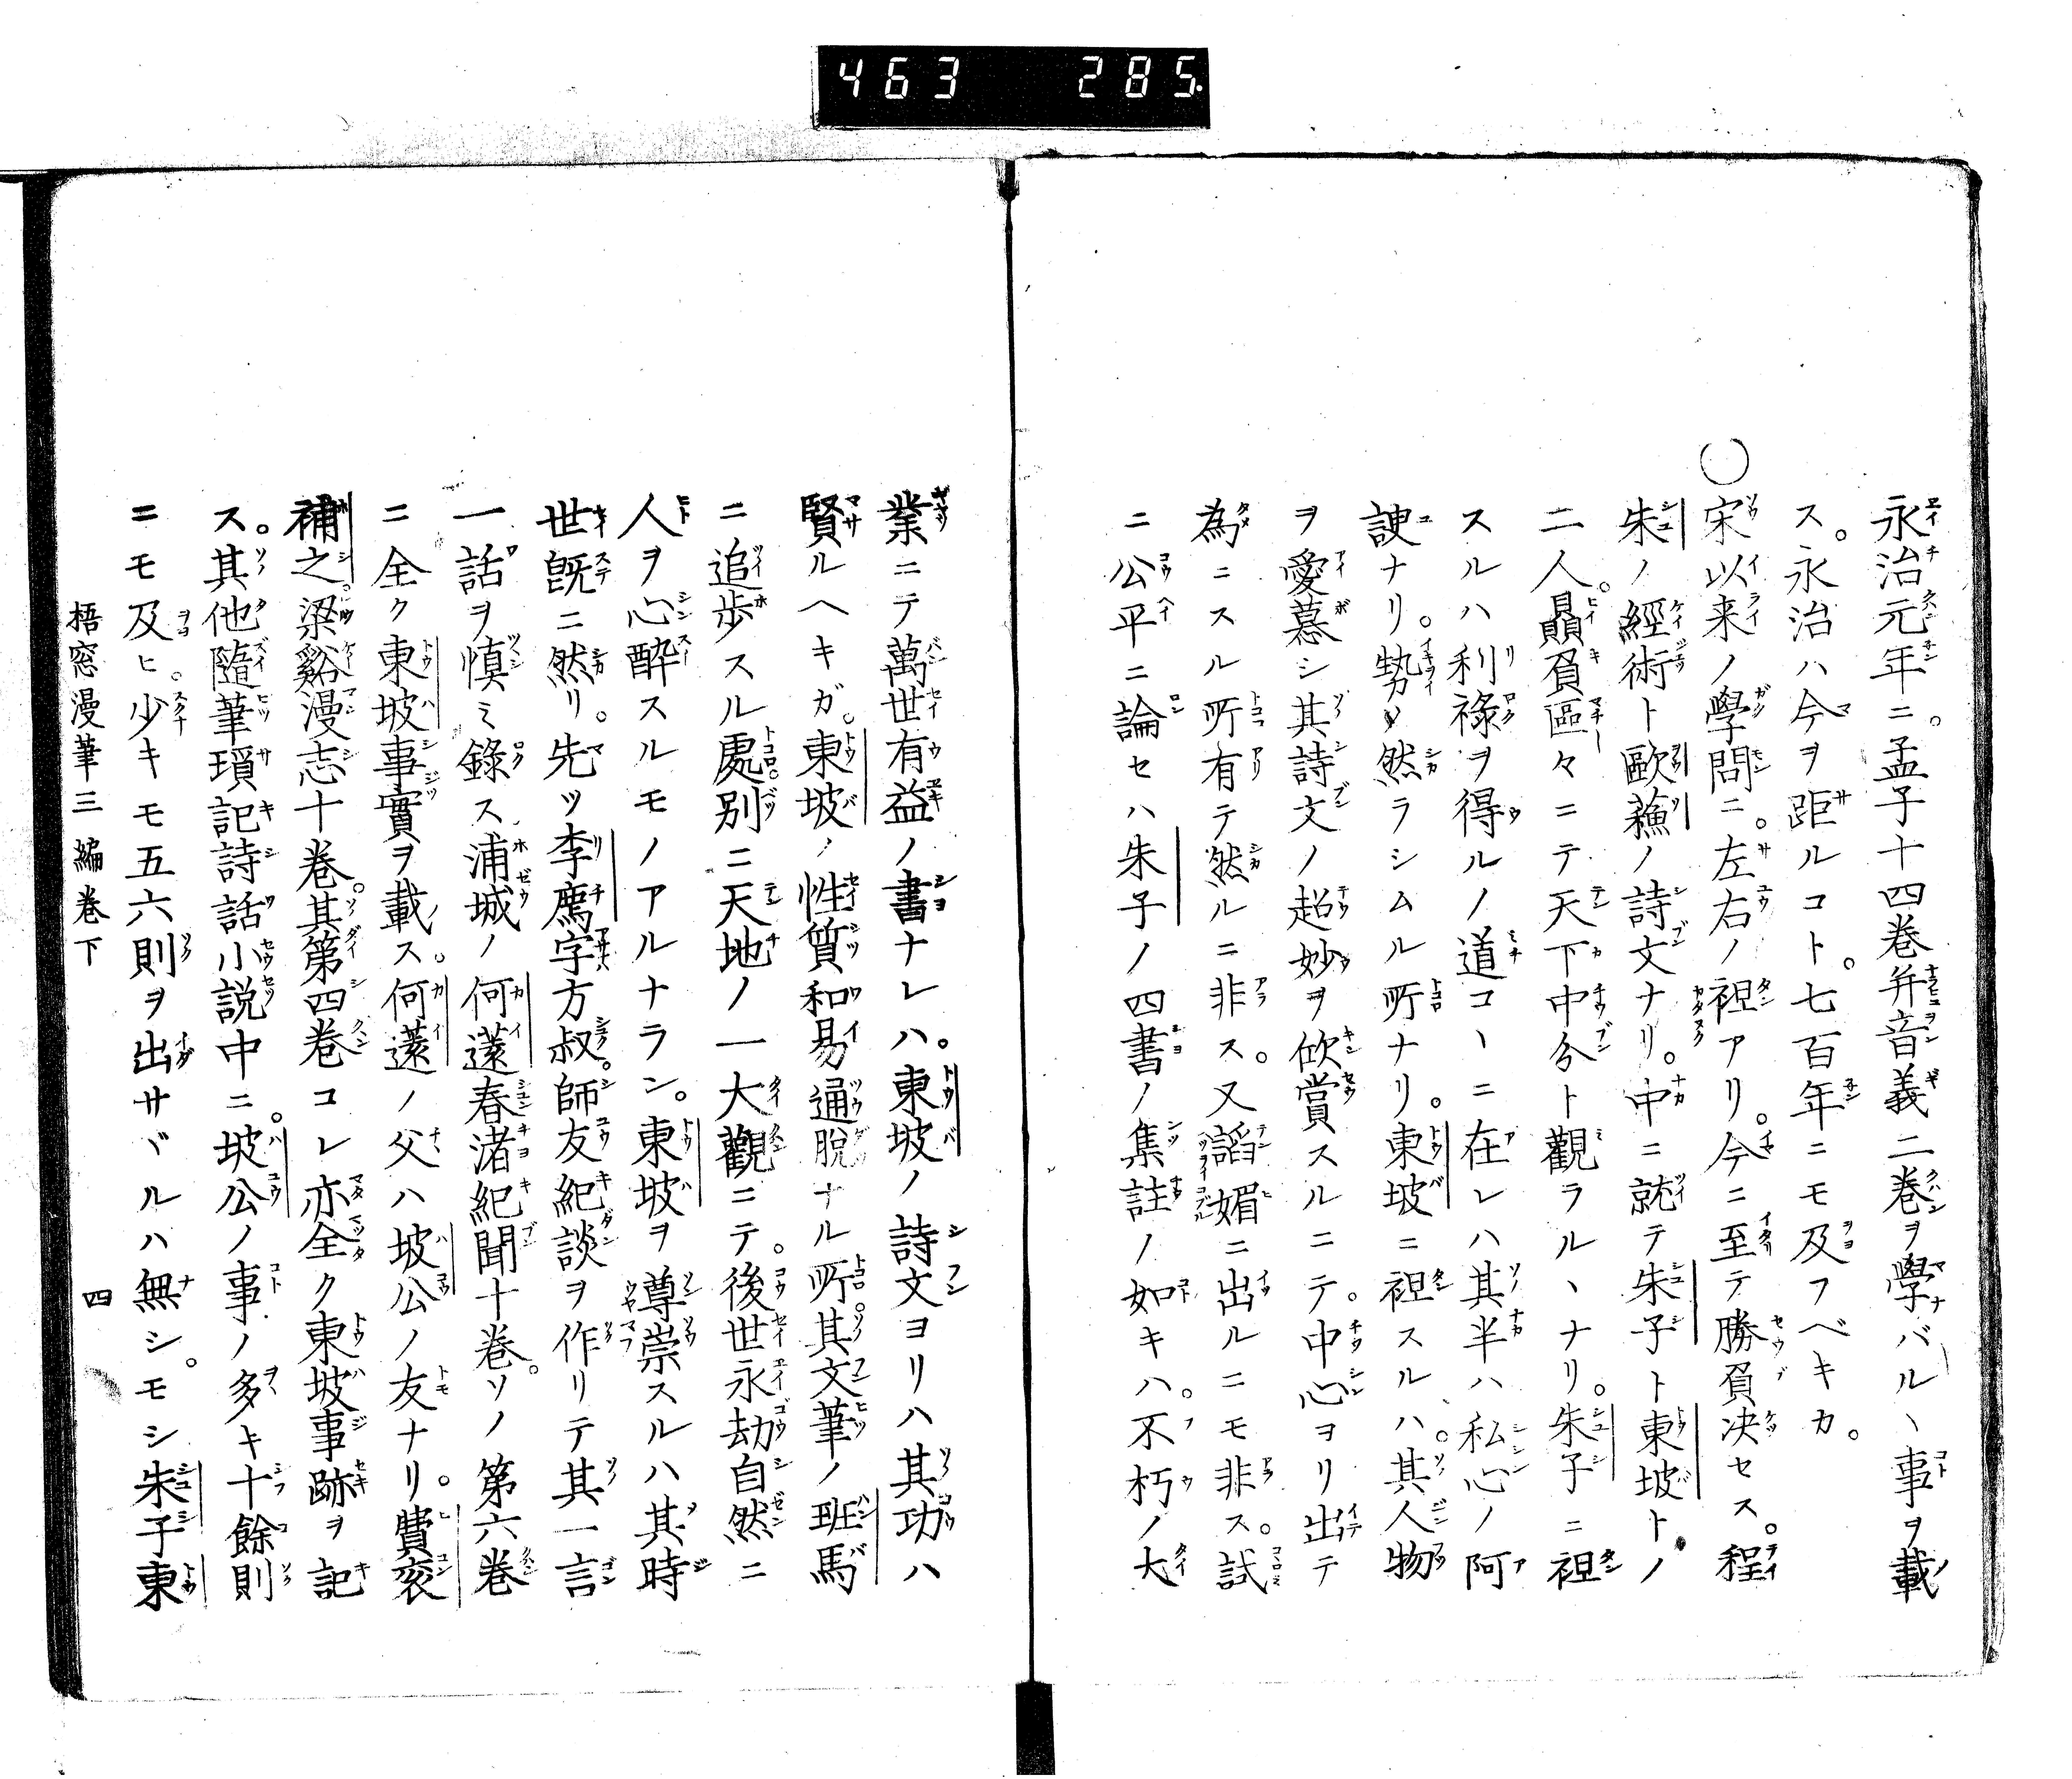 463 285.
永治元年ニ。孟子十四巻弁音義二巻ヲ學バルヽ事ヲ載
ス。永治ハ今ヲ距ルコト。七百年ニモ及フベキカ。
○宋以来ノ學問ニ。左右ノ袒アリ。今ニ至テ勝負决セス。程
朱ノ經術ト歐蘓ノ詩文ナリ。中ニ就テ朱子ト東坡トノ
二人。贔負區々ニテ天下中分ト觀ラルヽナリ。朱子ニ袒
スルハ利祿ヲ得ルノ道コヽニ在レハ其半ハ私心ノ阿
諛ナリ。勢ノ然ラシムル所ナリ。東坡ニ袒スルハ。其人物
ヲ愛慕シ其詩文ノ超妙ヲ欣賞スルニテ。中心ヨリ出テ
為ニスル所有テ然ルニ非ス。又諂媚ニ出ルニモ非ス。試
ニ公平ニ論セハ朱子ノ四書ノ集註ノ如キハ。不朽ノ大
業ニテ萬世有益ノ書ナレハ。東坡ノ詩文ヨリハ其功ハ
賢ルヘキガ。東坡ノ性質和易通脱ナル所。其文筆ノ班馬
ニ追歩スル處。別ニ天地ノ一大觀ニテ。後世永劫自然ニ
人ヲ心酔スルモノアルナラン。東坡ヲ尊崇スルハ其時
世既ニ然リ。先ツ李廌字方叔。師友紀談ヲ作リテ其一言
一話ヲ慎ミ錄ス浦城ノ何薳春渚紀聞十巻。ソノ第六巻
ニ全ク東坡事實ヲ載ス。何薳ノ父ハ坡公ノ友ナリ。費衮
補之。梁谿漫志十巻。其第四巻コレ亦全ク東坡事跡ヲ記
ス。其他隨筆瑣記詩話小説中ニ。坡公ノ事ノ多キ十餘則
ニモ及ヒ。少キモ五六則ヲ出サヾルハ無シ。モシ朱子東
梧窓漫筆三編巻下 四